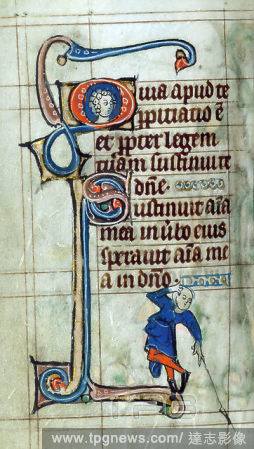 Quia apud te
ppitiatio ē
et ppter legem
tuam sustinui te
dñe.
Sustinuit aīa
mea in ūbo eius
speravit aīa me
a in dño.
www.tpgnews.com/ 達志影像